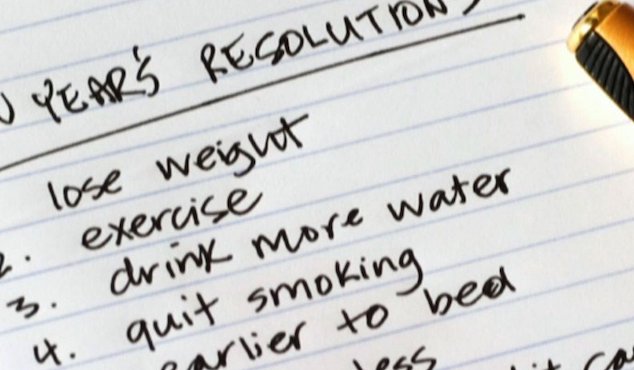 YEAR'S RESOLUTION
lose weight
2. exercise
3. drink more water
4. quit smoking
earlier to bed
less